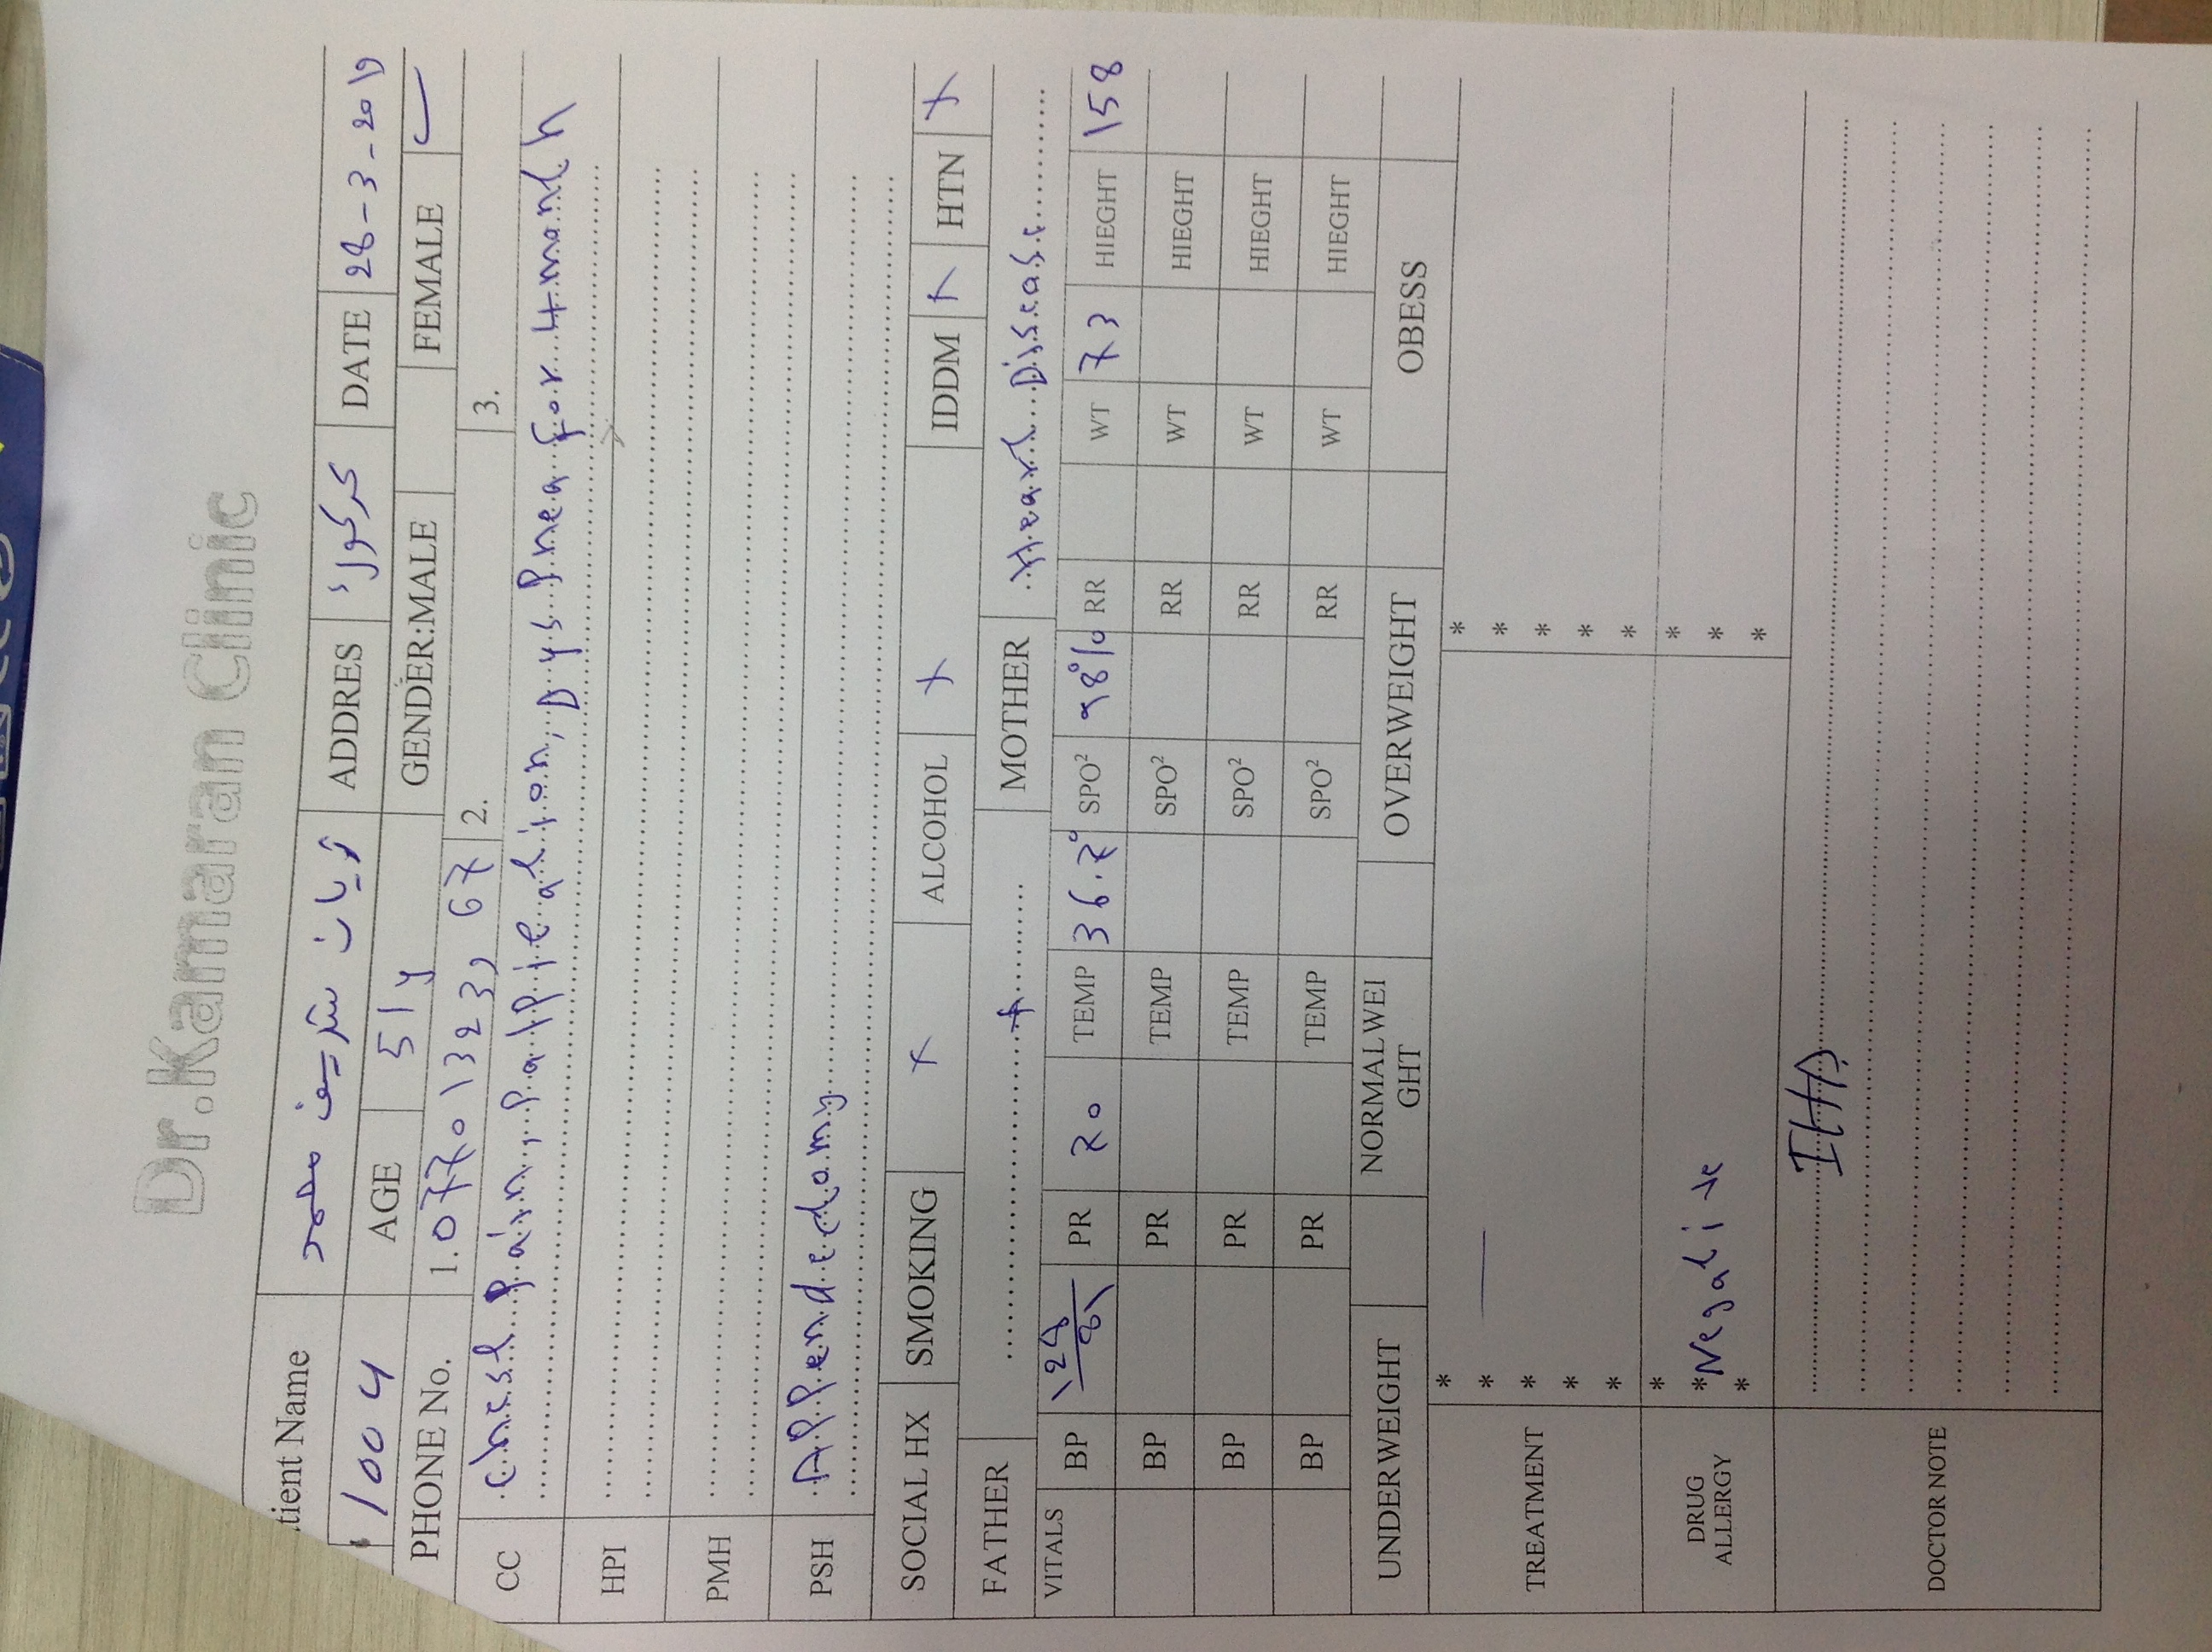 Dr.Kamaran Clinic
tient Name شريف محمد ADDRES كركوك DATE 28-3-20
1004 AGE 51y GENDER:MALE FEMALE ✓
PHONE No. 1. 07701323, 67 2. 3.
CC chest Pain, Palpieation, Dys Pnea for 4 month
HPI
PMH
PSH APPendectomy
SOCIAL HX SMOKING x ALCOHOL x IDDM x HTN x
FATHER x MOTHER Heart Disease
VITALS BP 128/81 PR 70 TEMP 36.7° SPO² 98% RR WT 73 HIEGHT 158
BP PR TEMP SPO² RR WT HIEGHT
BP PR TEMP SPO² RR WT HIEGHT
BP PR TEMP SPO² RR WT HIEGHT
UNDERWEIGHT NORMALWEI OVERWEIGHT OBESS
GHT
* *
* — *
TREATMENT * *
* *
* *
* *
DRUG *Negative *
ALLERGY * *
IHD
DOCTOR NOTE